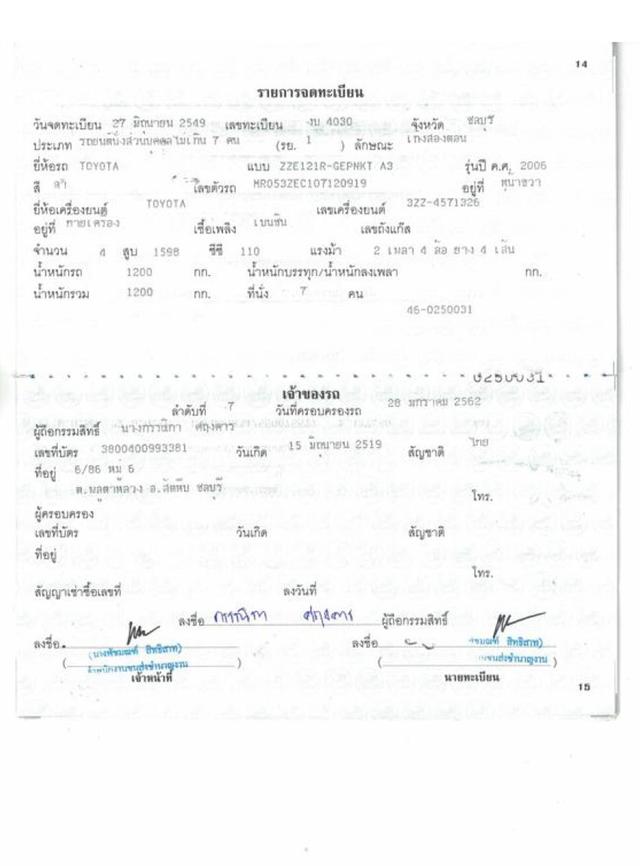 14
รายการจดทะเบียน
วันจดทะเบียน 27 มิถุนายน 2549 เลขทะเบียน งบ 4030 จังหวัด ชลบุรี
ประเภท รถยนต์นั่งส่วนบุคคลไม่เกิน 7 คน (รย. 1 ) ลักษณะ เก๋งสองตอน
ยี่ห้อรถ TOYOTA แบบ ZZE121R-GEPNKT A3 รุ่นปี ค.ศ. 2006
สี เลขตัวรถ MR053ZEC107120919 อยู่ที่
ยี่ห้อเครื่องยนต์ TOYOTA เลขเครื่องยนต์ 3ZZ-4571326
อยู่ที่ เชื้อเพลิง เบนซิน เลขถังแก๊ส
จำนวน 4 สูบ 1598 ซีซี 110 แรงม้า 2 เพลา 4 ล้อ ยาง 4 เส้น
น้ำหนักรถ 1200 กก. น้ำหนักบรรทุก/น้ำหนักลงเพลา กก.
น้ำหนักรวม 1200 กก. ที่นั่ง 7 คน
46-0250031
0250031
เจ้าของรถ
ลำดับที่ 7 วันที่ครอบครองรถ 28 มกราคม 2562
ผู้ถือกรรมสิทธิ์
เลขที่บัตร 3800400993381 วันเกิด 15 มิถุนายน 2519 สัญชาติ ไทย
ที่อยู่ 6/86 หมู่ 6
ต.พลูตาหลวง อ.สัตหีบ ชลบุรี โทร.
ผู้ครอบครอง
เลขที่บัตร วันเกิด สัญชาติ
ที่อยู่
โทร.
สัญญาเช่าซื้อเลขที่ ลงวันที่
ลงชื่อ ผู้ถือกรรมสิทธิ์
ลงชื่อ ลงชื่อ
เจ้าหน้าที่ นายทะเบียน
15